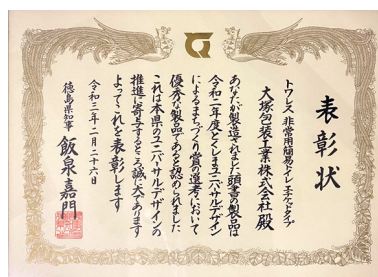 表彰状
トワレス 非常用簡易トイレ エチケットタイプ
大塚包装工業株式会社 殿
あなたが製造されました頭書の製品は
令和二年度とくしまユニバーサルデザイン
によるまちづくり賞の選考において
優秀な製品であると認められました
これは本県のユニバーサルデザインの
推進に寄与するところ誠に大であります
よってこれを表彰します
令和三年二月二十六日
徳島県知事 飯泉嘉門